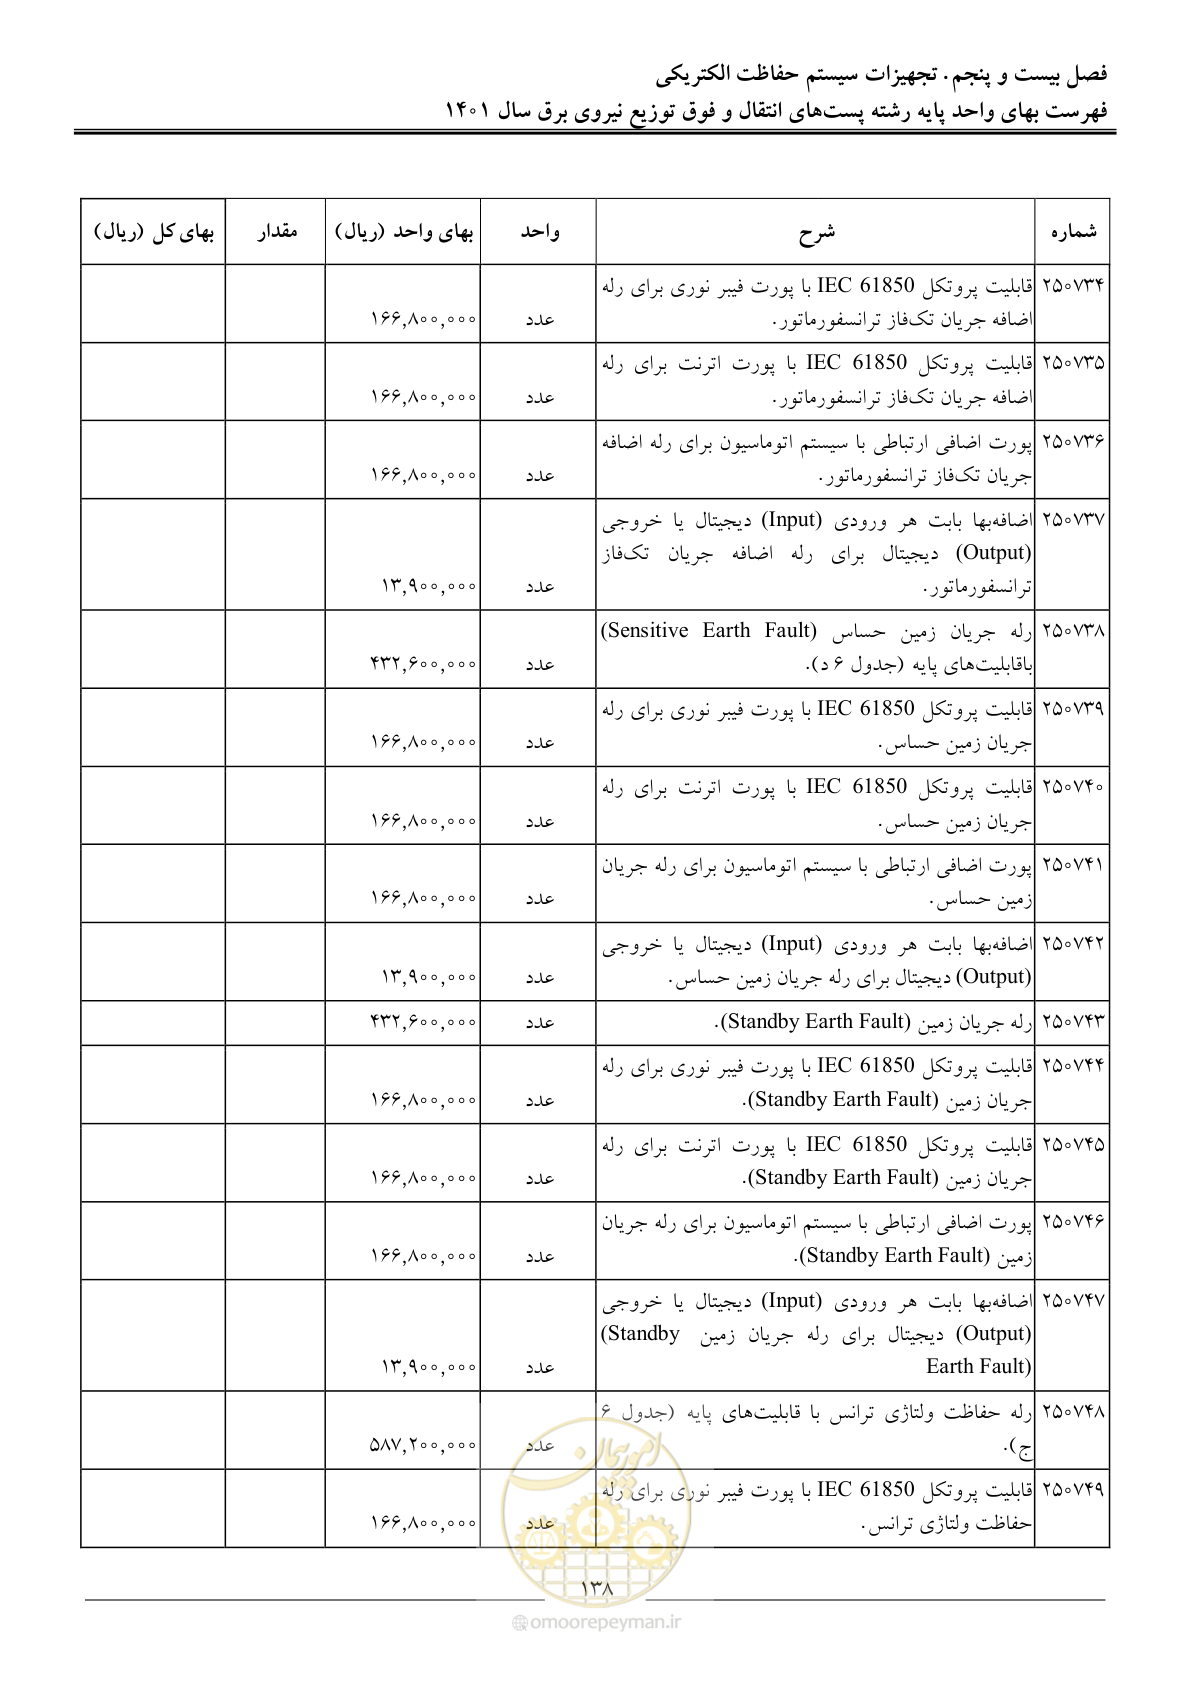 فصل بیست و پنجم. تجهیزات سیستم حفاظت الکتریکی
فهرست بهای واحد پایه رشته پست‌های انتقال و فوق توزیع نیروی برق سال ۱۴۰۱
شماره شرح واحد بهای واحد (ریال) مقدار بهای کل (ریال)
۲۵۰۷۳۴ قابلیت پروتکل IEC 61850 با پورت فیبر نوری برای رله
اضافه جریان تک‌فاز ترانسفورماتور. عدد ۱۶۶,۸۰۰,۰۰۰
۲۵۰۷۳۵ قابلیت پروتکل IEC 61850 با پورت اترنت برای رله
اضافه جریان تک‌فاز ترانسفورماتور. عدد ۱۶۶,۸۰۰,۰۰۰
۲۵۰۷۳۶ پورت اضافی ارتباطی با سیستم اتوماسیون برای رله اضافه
جریان تک‌فاز ترانسفورماتور. عدد ۱۶۶,۸۰۰,۰۰۰
۲۵۰۷۳۷ اضافه‌بها بابت هر ورودی (Input) دیجیتال یا خروجی
(Output) دیجیتال برای رله اضافه جریان تک‌فاز
ترانسفورماتور. عدد ۱۳,۹۰۰,۰۰۰
۲۵۰۷۳۸ رله جریان زمین حساس (Sensitive Earth Fault)
باقابلیت‌های پایه (جدول ۶ د). عدد ۴۳۲,۶۰۰,۰۰۰
۲۵۰۷۳۹ قابلیت پروتکل IEC 61850 با پورت فیبر نوری برای رله
جریان زمین حساس. عدد ۱۶۶,۸۰۰,۰۰۰
۲۵۰۷۴۰ قابلیت پروتکل IEC 61850 با پورت اترنت برای رله
جریان زمین حساس. عدد ۱۶۶,۸۰۰,۰۰۰
۲۵۰۷۴۱ پورت اضافی ارتباطی با سیستم اتوماسیون برای رله جریان
زمین حساس. عدد ۱۶۶,۸۰۰,۰۰۰
۲۵۰۷۴۲ اضافه‌بها بابت هر ورودی (Input) دیجیتال یا خروجی
(Output) دیجیتال برای رله جریان زمین حساس. عدد ۱۳,۹۰۰,۰۰۰
۲۵۰۷۴۳ رله جریان زمین (Standby Earth Fault). عدد ۴۳۲,۶۰۰,۰۰۰
۲۵۰۷۴۴ قابلیت پروتکل IEC 61850 با پورت فیبر نوری برای رله
جریان زمین (Standby Earth Fault). عدد ۱۶۶,۸۰۰,۰۰۰
۲۵۰۷۴۵ قابلیت پروتکل IEC 61850 با پورت اترنت برای رله
جریان زمین (Standby Earth Fault). عدد ۱۶۶,۸۰۰,۰۰۰
۲۵۰۷۴۶ پورت اضافی ارتباطی با سیستم اتوماسیون برای رله جریان
زمین (Standby Earth Fault). عدد ۱۶۶,۸۰۰,۰۰۰
۲۵۰۷۴۷ اضافه‌بها بابت هر ورودی (Input) دیجیتال یا خروجی
(Output) دیجیتال برای رله جریان زمین (Standby
Earth Fault) عدد ۱۳,۹۰۰,۰۰۰
۲۵۰۷۴۸ رله حفاظت ولتاژی ترانس با قابلیت‌های پایه (جدول ۶
ج). عدد ۵۸۷,۲۰۰,۰۰۰
۲۵۰۷۴۹ قابلیت پروتکل IEC 61850 با پورت فیبر نوری برای رله
حفاظت ولتاژی ترانس. عدد ۱۶۶,۸۰۰,۰۰۰
امور پیمان
۱۳۸
omoorepeyman.ir